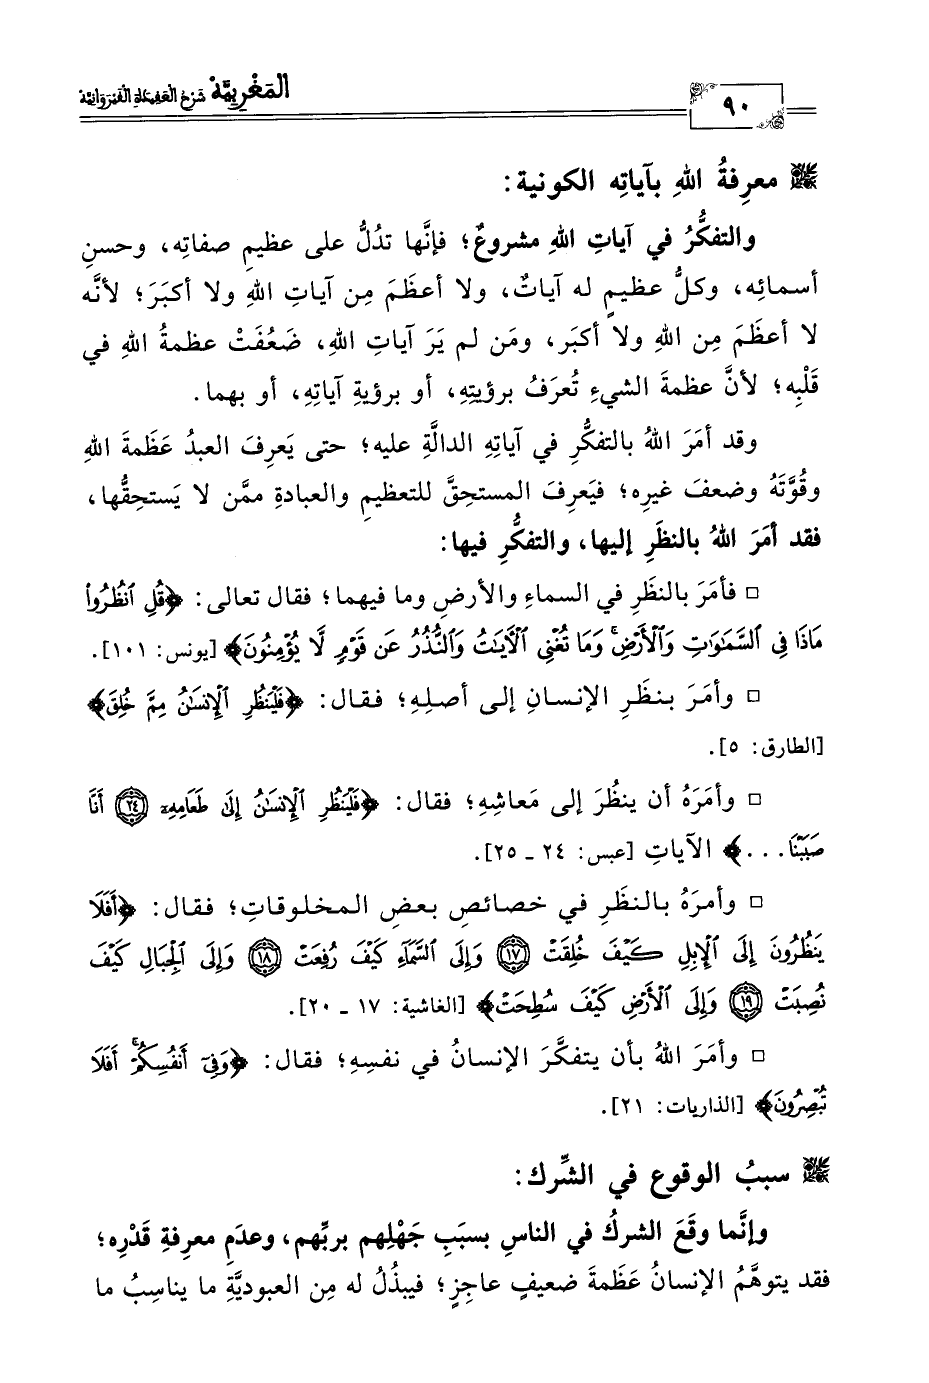 المَغْرِبِيَّة شَرْحُ العَقِيدَةِ القَيْرَوَانِيَّة
٩٠
معرِفةُ اللهِ بآياتِه الكونية:
والتفكُّرُ في آياتِ اللهِ مشروعٌ؛ فإنَّها تدُلُّ على عظيمِ صفاتِه، وحسنِ
أسمائِه، وكلُّ عظيمٍ له آياتٌ، ولا أعظَمَ مِن آياتِ اللهِ ولا أكبَرَ؛ لأنَّه
لا أعظَمَ مِن اللهِ ولا أكبَر، ومَن لم يَرَ آياتِ اللهِ، ضَعُفَتْ عظمةُ اللهِ في
قَلْبِه؛ لأنَّ عظمةَ الشيءِ تُعرَفُ برؤيتِهِ، أو برؤيةِ آياتِهِ، أو بهما.
وقد أمَرَ اللهُ بالتفكُّرِ في آياتِهِ الدالَّةِ عليه؛ حتى يَعرِفَ العبدُ عَظَمةَ اللهِ
وقُوَّتَهُ وضعفَ غيرِه؛ فيَعرِفَ المستحِقَّ للتعظيمِ والعبادةِ ممَّن لا يَستحِقُّها،
فقد أمَرَ اللهُ بالنظَرِ إليها، والتفكُّرِ فيها:
□ فأمَرَ بالنظَرِ في السماءِ والأرضِ وما فيهما؛ فقال تعالى: ﴿قُلِ ٱنظُرُواْ
مَاذَا فِي ٱلسَّمَٰوَٰتِ وَٱلْأَرْضِۚ وَمَا تُغْنِي ٱلْأٓيَٰتُ وَٱلنُّذُرُ عَن قَوْمٍ لَّا يُؤْمِنُونَ﴾ [يونس: ١٠١].
□ وأمَرَ بنظَرِ الإنسانِ إلى أصلِهِ؛ فقال: ﴿فَلْيَنظُرِ ٱلْإِنسَٰنُ مِمَّ خُلِقَ﴾
[الطارق: ٥].
□ وأمَرَهُ أن ينظُرَ إلى مَعاشِهِ؛ فقال: ﴿فَلْيَنظُرِ ٱلْإِنسَٰنُ إِلَىٰ طَعَامِهِۦ ٢٤ أَنَّا
صَبَبْنَا...﴾ الآياتِ [عبس: ٢٤ ـ ٢٥].
□ وأمرَهُ بالنظَرِ في خصائصِ بعضِ المخلوقاتِ؛ فقال: ﴿أَفَلَا
يَنظُرُونَ إِلَى ٱلْإِبِلِ كَيْفَ خُلِقَتْ ١٧ وَإِلَى ٱلسَّمَآءِ كَيْفَ رُفِعَتْ ١٨ وَإِلَى ٱلْجِبَالِ كَيْفَ
نُصِبَتْ ١٩ وَإِلَى ٱلْأَرْضِ كَيْفَ سُطِحَتْ﴾ [الغاشية: ١٧ ـ ٢٠].
□ وأمَرَ اللهُ بأن يتفكَّرَ الإنسانُ في نفسِهِ؛ فقال: ﴿وَفِيٓ أَنفُسِكُمْۚ أَفَلَا
تُبْصِرُونَ﴾ [الذاريات: ٢١].
سببُ الوقوع في الشِّرك:
وإنَّما وقَعَ الشركُ في الناسِ بسبَبِ جَهْلِهم بربِّهم، وعدَمِ معرِفةِ قَدْرِه؛
فقد يتوهَّمُ الإنسانُ عَظَمةَ ضعيفٍ عاجِزٍ؛ فيبذُلُ له مِن العبوديَّةِ ما يناسِبُ ما